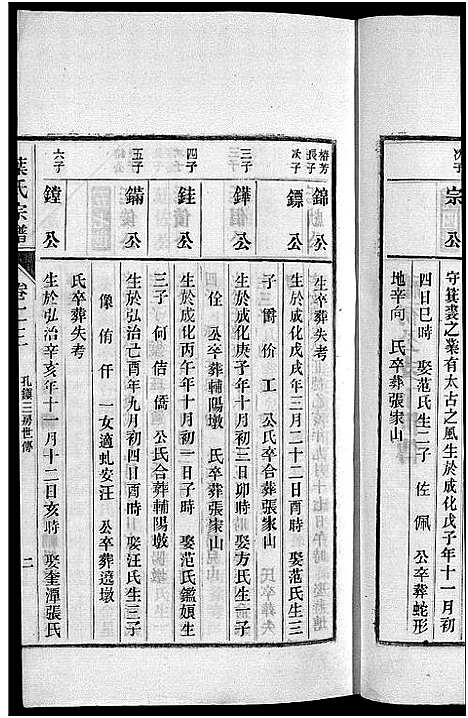 次子
宗公
守箕裘之業有太古之風生於成化丁子年十一月初
四日巳時 娶范氏生二子 佐 佩 公卒葬蛇形
地辛向 氏卒葬張家山
椿芳長子
錦公
生卒葬失考
次子
鏢公
生於成化戊戌年三月二十二日酉時 娶范氏生三
子 爵 价 工 公氏卒合葬張家山 氏卒葬失
三子
鏵公
生於成化庚子年十月初三日卯時 娶方氏生一子
佺 公卒葬輔陽墩 氏卒葬張家山
四子
銈公
生於成化丙午年十月一日子時 娶范氏鑑娘生
三子 何 佶 僑 公氏合葬輔陽墩
五子
鏋公
生於弘治己酉年九月初四日酉時 娶汪氏生三子
像 侑 仟 一女適虬安汪 公卒葬邊墩
氏卒葬失考
六子
鏜公
生於弘治辛亥年十一月十二日亥時 娶奎潭張氏
葉氏宗譜
卷
孔鑲三房世傳
二